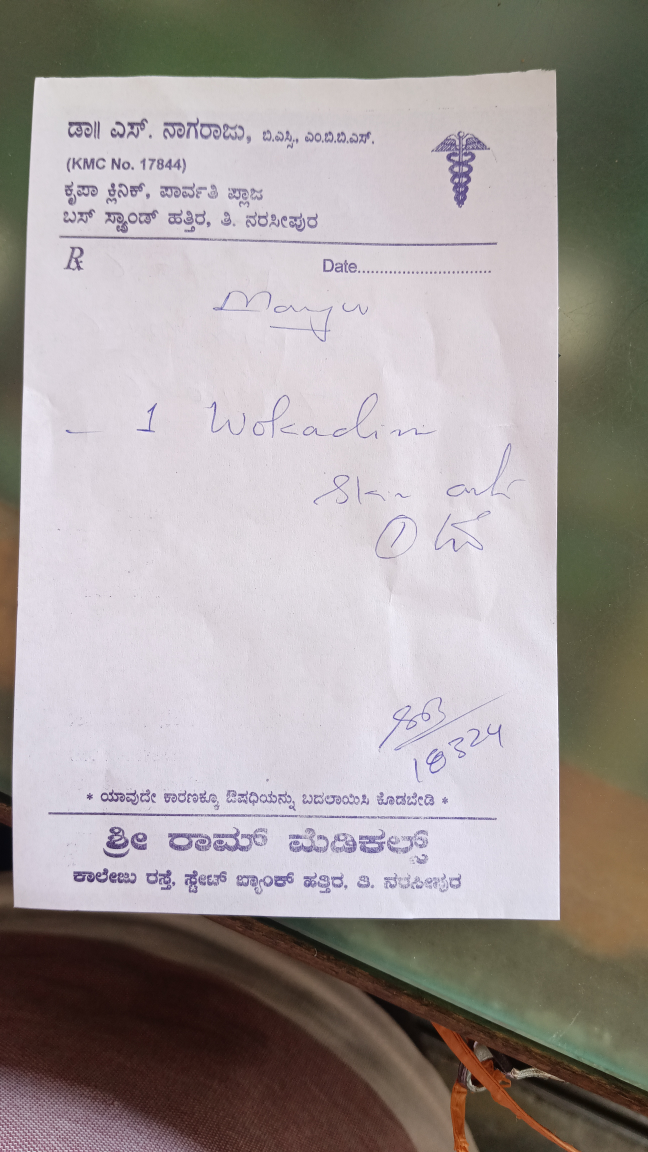 ಡಾ॥ ಎಸ್. ನಾಗರಾಜು, ಬಿ.ಎಸ್ಸಿ., ಎಂ.ಬಿ.ಬಿ.ಎಸ್.
(KMC No. 17844)
ಕೃಪಾ ಕ್ಲಿನಿಕ್, ಪಾರ್ವತಿ ಪ್ಲಾಜ
ಬಸ್ ಸ್ಟ್ಯಾಂಡ್ ಹತ್ತಿರ, ತಿ. ನರಸೀಪುರ
℞ Date..............................
- 1 Wokadin
Skin
①
18324
* ಯಾವುದೇ ಕಾರಣಕ್ಕೂ ಔಷಧಿಯನ್ನು ಬದಲಾಯಿಸಿ ಕೊಡಬೇಡಿ *
ಶ್ರೀ ರಾಮ್ ಮೆಡಿಕಲ್ಸ್
ಕಾಲೇಜು ರಸ್ತೆ, ಸ್ಟೇಟ್ ಬ್ಯಾಂಕ್ ಹತ್ತಿರ, ತಿ. ನರಸೀಪುರ